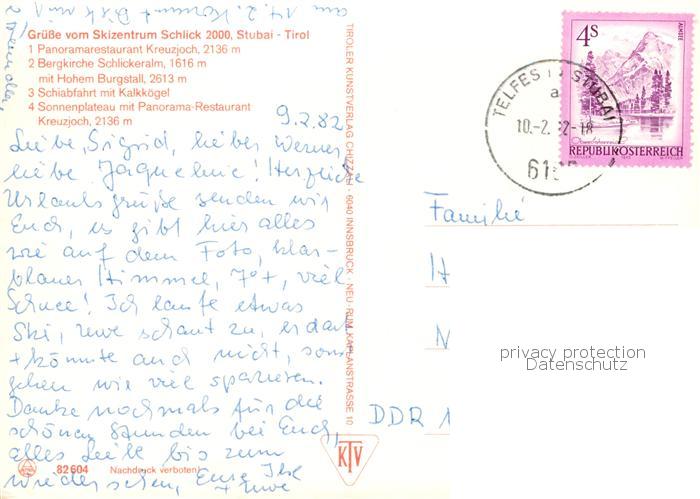 Grüße vom Skizentrum Schlick 2000, Stubai - Tirol
1 Panoramarestaurant Kreuzjoch, 2136 m
2 Bergkirche Schlickeralm, 1616 m
mit Hohem Burgstall, 2613 m
3 Schiabfahrt mit Kalkkögel
4 Sonnenplateau mit Panorama-Restaurant
Kreuzjoch, 2136 m
9.2.82
Liebe Sigrid, lieber Werner
liebe Jaqueline! Herzliche
Urlaubsgrüße senden wir
Euch, es gibt hier alles
wie auf dem Foto, klar-
blauer Himmel, 7°+, viel
Schnee! Ich laufe etwas
Ski, Uwe schaut zu, er darf
+ könnte auch nicht, sonst
gehen wir viel spazieren.
Danke nochmals für die
schönen Stunden bei Euch,
alles Liebe bis zum
wiedersehen, Eure Ilse
+ Uwe
am 14.2. kommt Dirk
82604 Nachdruck verboten!
TIROLER KUNSTVERLAG CHIZZALI 6040 INNSBRUCK - NEU-RUM, KAPLANSTRASSE 10
KTV
4S
ALMSEE
Oberösterreich
REPUBLIK ÖSTERREICH
TELFES IM STUBAI
a
10.-2. 82-18
61
Familie
H
N
DDR 1
privacy protection
Datenschutz